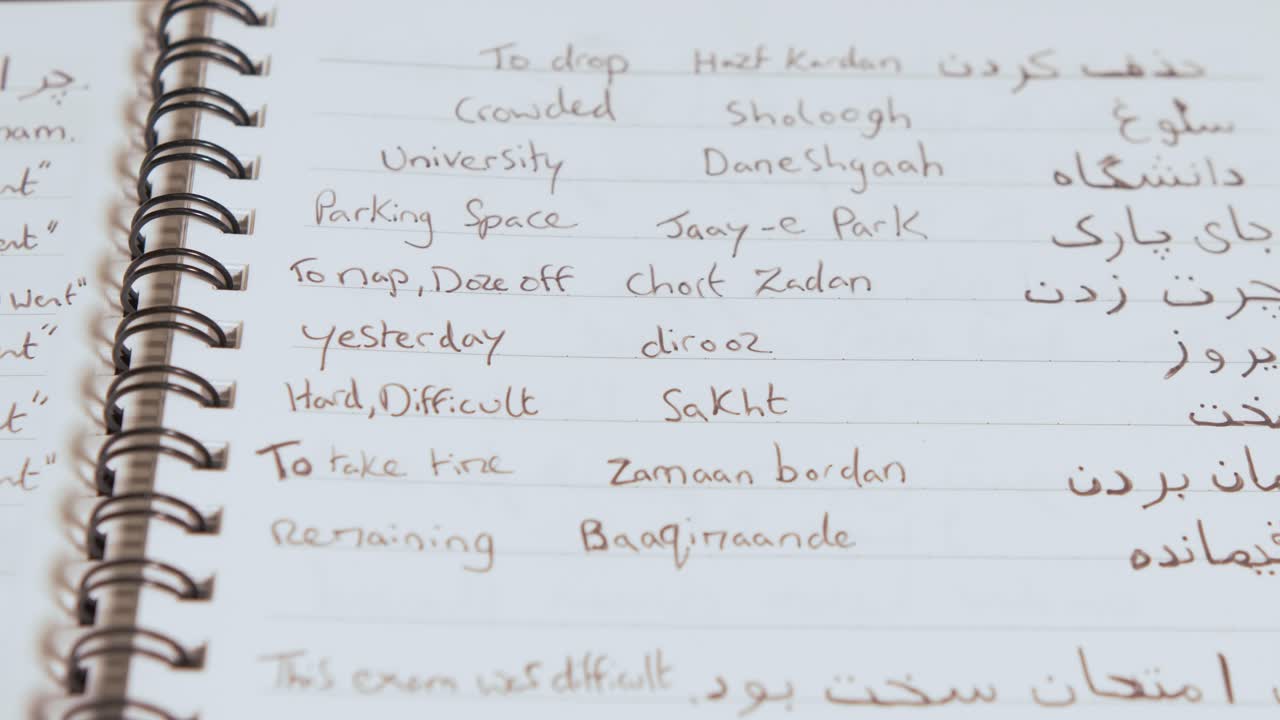 چرا
nam.
nt"
ent"
went"
nt"
t"
ent"
To drop Hazf Kardan حذف کردن
Crowded Sholoogh سلوغ
University Daneshgaah دانشگاه
Parking Space Jaay-e Park جای پارک
To nap, Doze off Chort Zadan چرت زدن
yesterday dirooz یروز
Hard, Difficult Sakht خت
To take time Zamaan bordan مان بردن
Remaining Baaqimaande قیمانده
This exam was difficult. امتحان سخت بود.